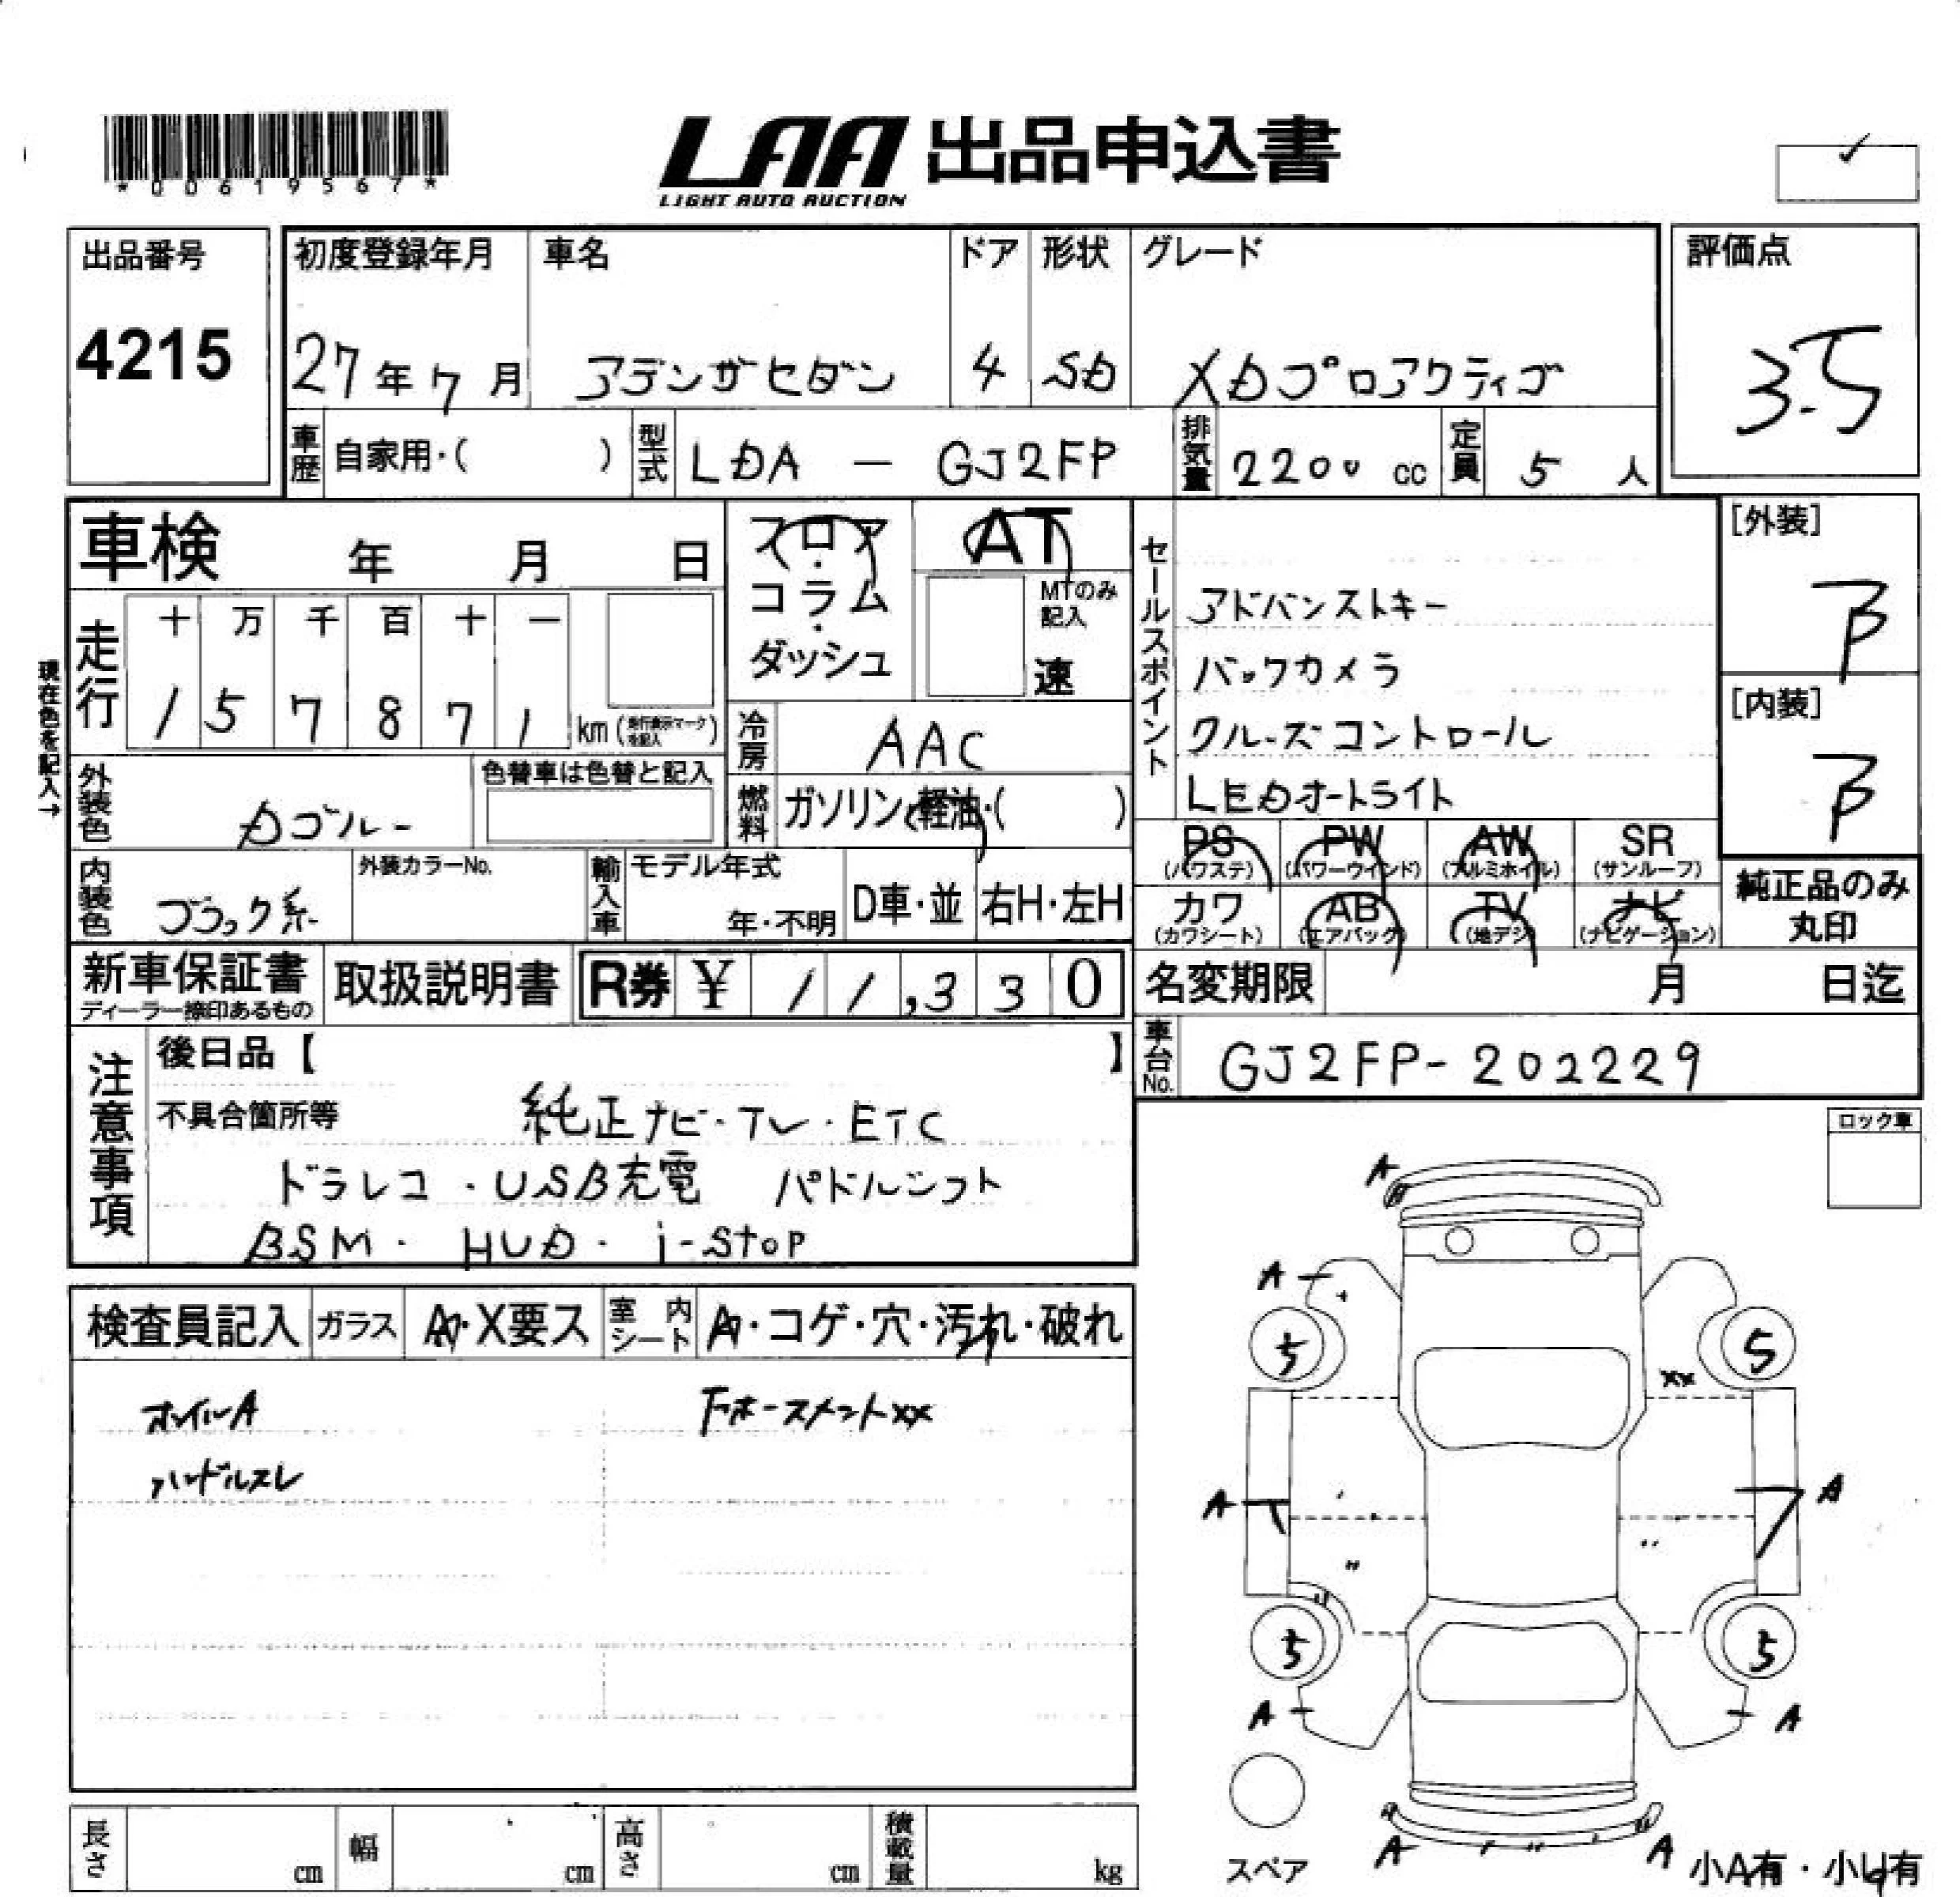 *00619567*
LAA 出品申込書
LIGHT AUTO AUCTION
出品番号
4215
初度登録年月 車名 ドア 形状 グレード
27年7月 アテンザセダン 4 SD XDプロアクティブ
評価点
3.5
車歴 自家用・( ) 型式 LDA － GJ2FP 排気量 2200 cc 定員 5 人
車検 年 月 日
フロア・コラム・ダッシュ
AT
MTのみ記入
速
走行 十 万 千 百 十 一
1 5 7 8 7 1 km (走行表示マークを記入)
現在色を記入→
冷房 AAC
外装色 Dブルー 色替車は色替と記入
燃料 ガソリン・軽油・( )
セールスポイント
アドバンストキー
バックカメラ
クルーズコントロール
LEDオートライト
[外装]
B
[内装]
B
内装色 ブラック系 外装カラーNo. 輸入車 モデル年式 年・不明 D車・並 右H・左H
PS (パワステ) PW (パワーウィンド) AW (アルミホイル) SR (サンルーフ)
カワ (カワシート) AB (エアバック) TV (地デジ) ナビ (ナビゲーション)
純正品のみ丸印
新車保証書 ディーラー捺印あるもの 取扱説明書 R券 ¥ 11,330
名変期限 月 日迄
車台No. GJ2FP-202229
注意事項
後日品【 】
不具合箇所等 純正ナビ・TV・ETC
ドラレコ・USB充電 パドルシフト
BSM・HUD・i-stop
ロック車
検査員記入 ガラス A・X要ス 室内シート A・コゲ・穴・汚れ・破れ
ホイルA Fホースメントxx
ハンドルスレ
A
A
5 5
xx
A A
5 5
A A
スペア
A A
小A有・小U有
長さ cm 幅 cm 高さ cm 積載量 kg